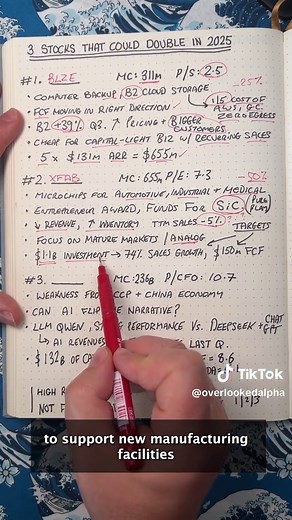 3 STOCKS THAT COULD DOUBLE IN 2025
#1. BLZE MC: 311M P/S: 2.5 -25%
• COMPUTER BACKUP, B2 CLOUD STORAGE
• FCF MOVING IN RIGHT DIRECTION
1/5 COST OF AWS, G.C.
ZERO EGRESS
• B2 +39% Q3. ↑ PRICING + BIGGER CUSTOMERS
• CHEAP FOR CAPITAL-LIGHT BIZ W/ RECURRING SALES
• 5 × $131M ARR = $655M
#2. XFAB MC: 655M P/E: 7.3 -50%
• MICROCHIPS FOR AUTOMOTIVE, INDUSTRIAL + MEDICAL
• ENTREPRENEUR AWARD, FUNDS FOR SiC (PURE PLAY)
↓ REVENUE, ↑ INVENTORY TTM SALES -5%?
TARGETS
• FOCUS ON MATURE MARKETS / ANALOG
• $1.1B INVESTMENT → 74% SALES GROWTH, $150M FCF
#3. MC: 236B P/CFO: 10.7
• WEAKNESS FROM CCP + CHINA ECONOMY
• CAN AI FLIP THE NARRATIVE?
• LLM QWEN, PERFORMANCE VS. DEEPSEEK + CHAT GPT
↳ AI REVENUES LAST Q.
• $132B OF CA = 8.6
HIGH R
NOT F 1/2/3
TikTok
@overlookedalpha
to support new manufacturing
facilities